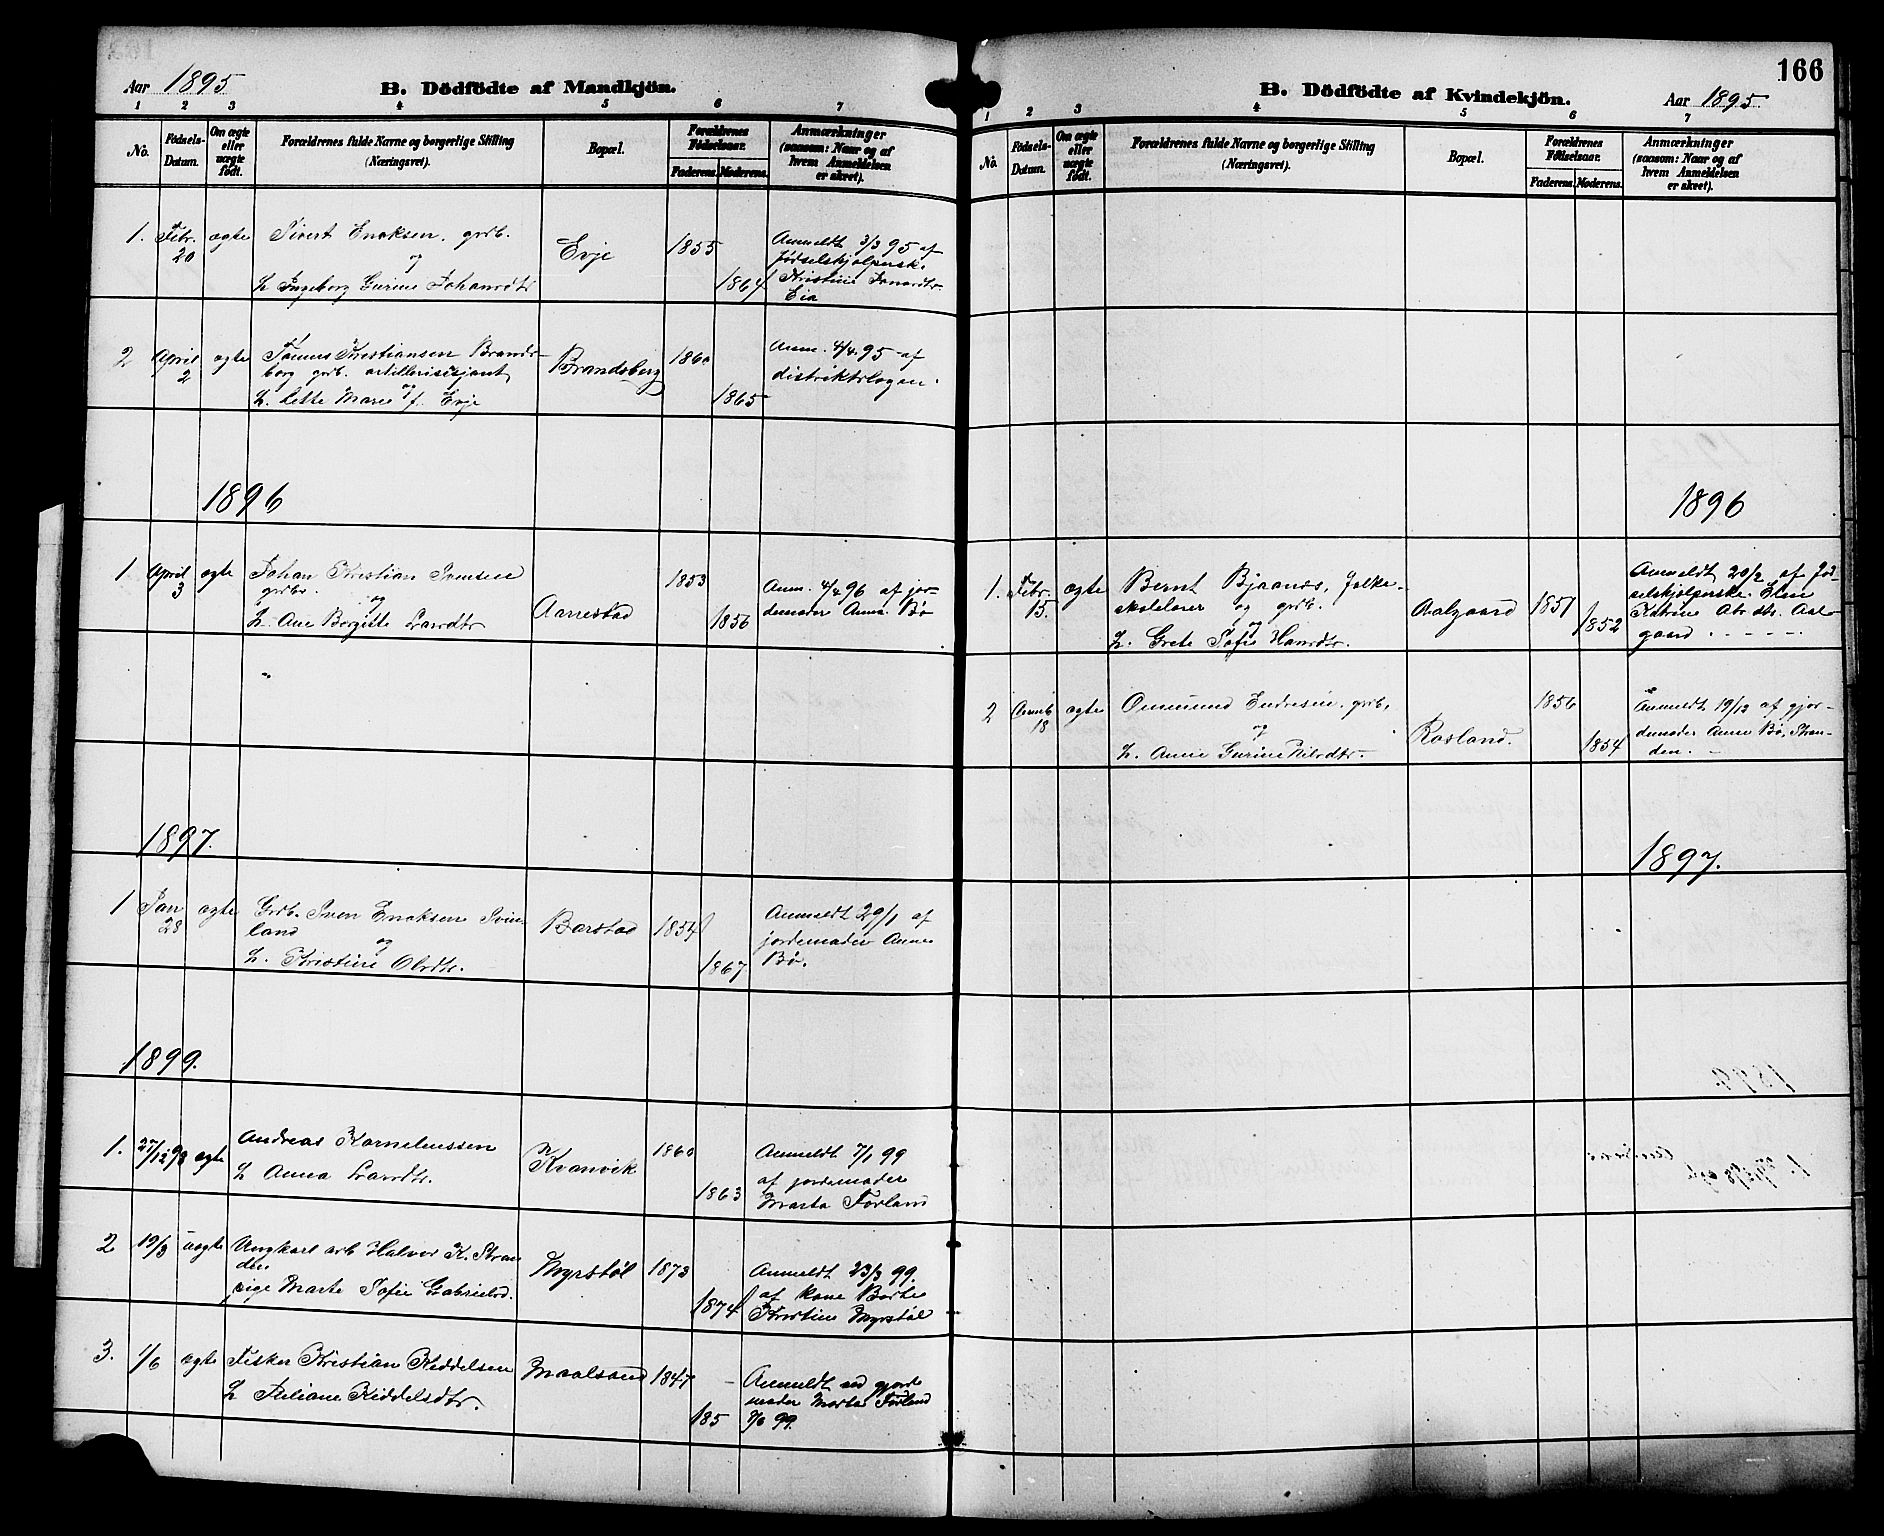 Aar 1895
B. Dödfödte af Mandkjön.
1 2 3 4 5 6 7
No. Födsels-Datum. Om ægte eller uægte födt. Forældrenes fulde Navne og borgerlige Stilling (Næringsvei). Bopæl. Forældrenes Födselsaar. Faderens. Moderens. Anmærkninger (saasom: Naar og af hvem Anmeldelsen er skeet).
1. Febr. 20 ægte Sivert Enoksen, grdb.
og
h. Ingeborg Gurine Johansdtr
Evje 1855 1864
Anmeldt 3/3 95 af
fødselshjælpersk.
Kristine
Eia
2 April 2 ægte Tønnes Kristiansen Brands-
berg grdb. artillerisersjant
og
h. Lette Marie f. Evje
Brandsberg 1860 1865
Anm. 4/4 95 af
distriktslægen.
1896
1 April 3 ægte Johan Kristian Svensen
grdbr. og
h. Ane Birgitte Larsdtr
Aarrestad 1853 1856
Anm. 4/4 96 af jor-
demoder Anna Bø
1897.
1 Jan 28 ægte Grdb. Sven Enoksen Svin-
land
og
h. Kristine Olsdtr.
Barstad 1854 1867
Anmeldt 29/1 af
jordemoder Anna
Bø.
1899.
1. 27/12 98 ægte Andreas Korneliussen
h Anna Larsdtr.
Kvanvik 1860 1863
Anmeldt 7/1 99
af jordemoder
Marta Førland
2 19/3 uægte Ungkarl arb Halvor K. Stran
den
pige Marte Sofie Gabrielsd.
Myrstøl 1873 1874
Anmeldt 23/3 99.
af kone Berte
Kristine Myrstøl
3. 1/6 ægte Fisker Kristian Kiddelsen
h Juliane Kiddelsdtr.
Maalsund 1847 185
Anmeldt ved gjorde
moder Marta Førland
7/6 99.
166
B. Dödfödte af Kvindekjön.
Aar 1895.
1 2 3 4 5 6 7
No. Födsels-Datum. Om ægte eller uægte födt. Forældrenes fulde Navne og borgerlige Stilling (Næringsvei). Bopæl. Forældrenes Födselsaar. Faderens. Moderens. Anmærkninger (saasom: Naar og af hvem Anmeldelsen er skeet).
1896
1. Febr. 15. ægte Bernt Bjaanes, folke-
skolelærer og grdb.
og
h. Grete Sofie Hansdtr.
Aalgaard 1851 1852
Anmeldt 20/2 af fød-
selshjælperske Elen
Katrine Abr.dtr. Aal-
gaard
2 18 ægte Ommund Endresen, grdb.
og
h. Anne Gurine Nilsdtr.
Rosland. 1856 1854
Anmeldt 19/12 af gjor-
demoder Anne Bø, Stran-
den.
1897.